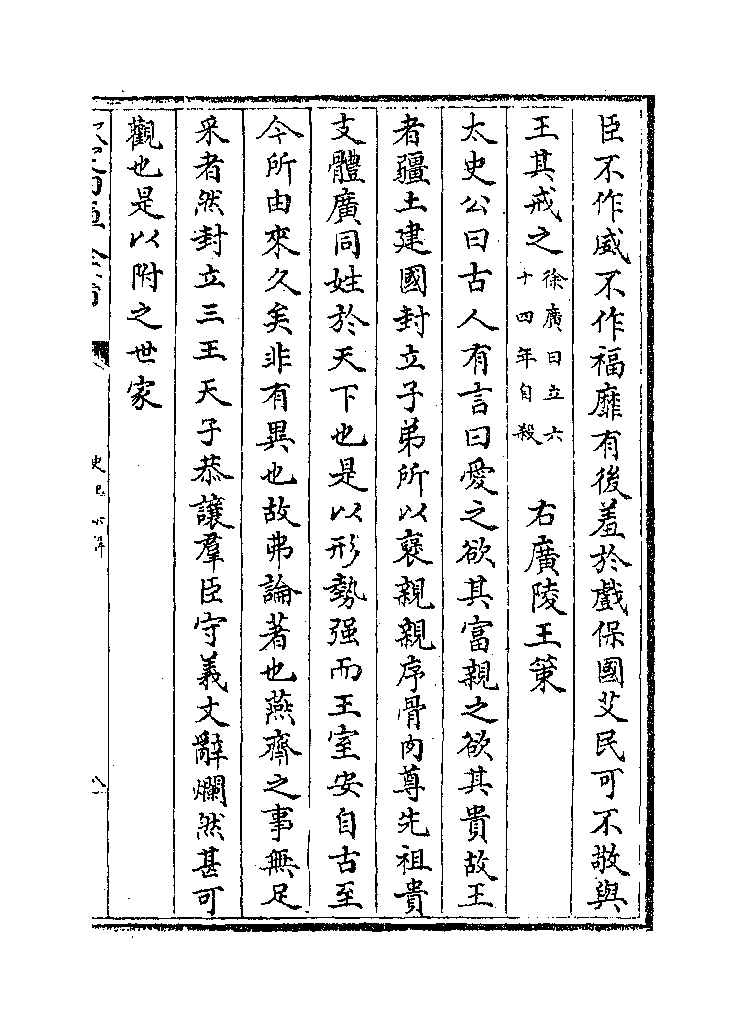 臣不作威不作福靡有後羞於戲保國艾民可不敬與
王其戒之徐廣曰立六十四年自殺 右廣陵王策
太史公曰古人有言曰愛之欲其富親之欲其貴故王
者疆土建國封立子弟所以襃親親序骨肉尊先祖貴
支體廣同姓於天下也是以形勢强而王室安自古至
今所由來久矣非有異也故弗論著也燕齊之事無足
采者然封立三王天子恭讓羣臣守義文辭爛然甚可
觀也是以附之世家
史記